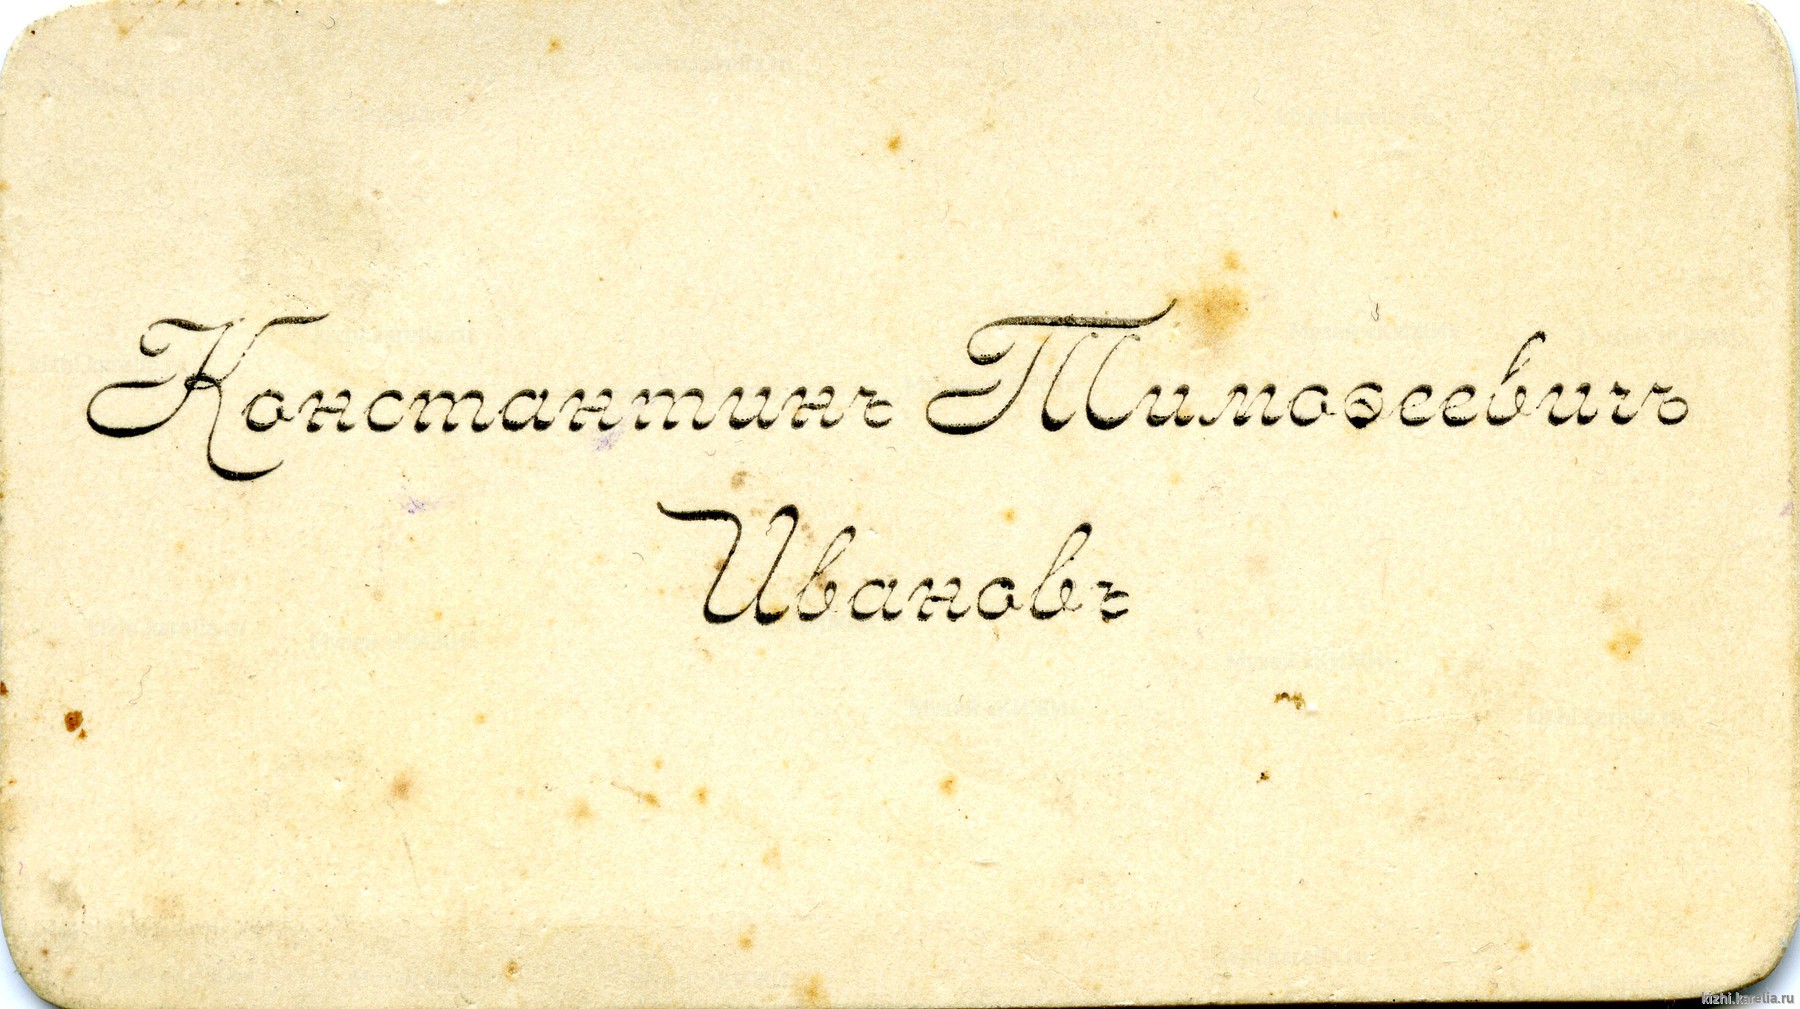 Константинъ Тимоѳеевичъ
Ивановъ
kizhi.karelia.ru